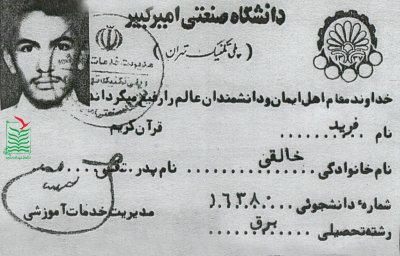 دانشگاه صنعتی امیرکبیر
(پلی تکنیک تهران)
خداوند مقام اهل ایمان و دانشمندان عالم را رفیع میگرداند
قرآن کریم
نام فرید
نام خانوادگی خالقی نام پدر
شمارهٔ دانشجوئی ۱۶۳۸۰
مدیریت خدمات آموزشی
رشته تحصیلی برق
مدیریت خدمات